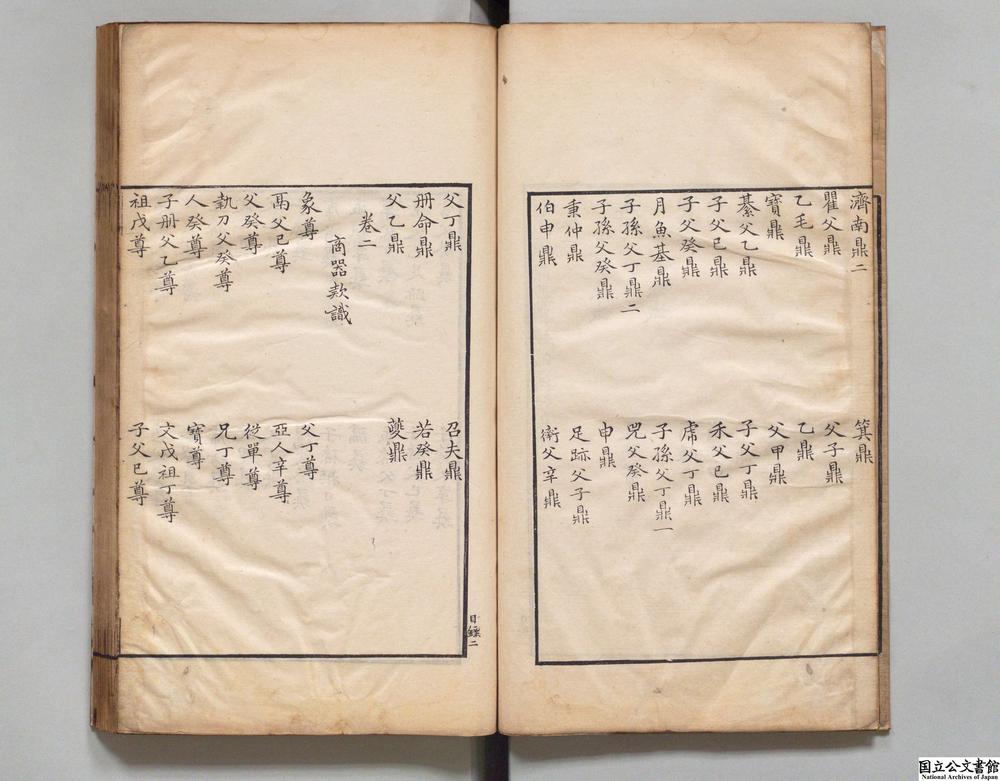 濟南鼎二 箕鼎
瞿父鼎 父子鼎
乙毛鼎 乙鼎
寶鼎 父甲鼎
綦父乙鼎 子父丁鼎
子父己鼎 禾父己鼎
子父癸鼎 虎父丁鼎
月魚基鼎 子孫父丁鼎一
子孫父丁鼎二 兕父癸鼎
子孫父癸鼎 申鼎
秉仲鼎 足跡父子鼎
伯申鼎 衛父辛鼎
父丁鼎 召夫鼎
册命鼎 若癸鼎
父乙鼎 夔鼎
卷二
商器款識
象尊 父丁尊
鬲父己尊 亞人辛尊
父癸尊 從單尊
執刀父癸尊 兄丁尊
人癸尊 寶尊
子册父乙尊 文戊祖丁尊
祖戊尊 子父己尊
目 二
国立公文書館
National Archives of Japan